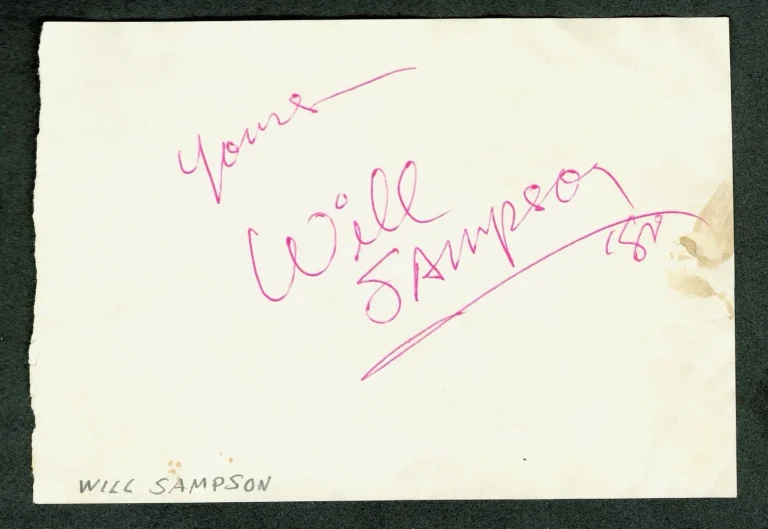 Yours
Will
Sampson
WILL SAMPSON